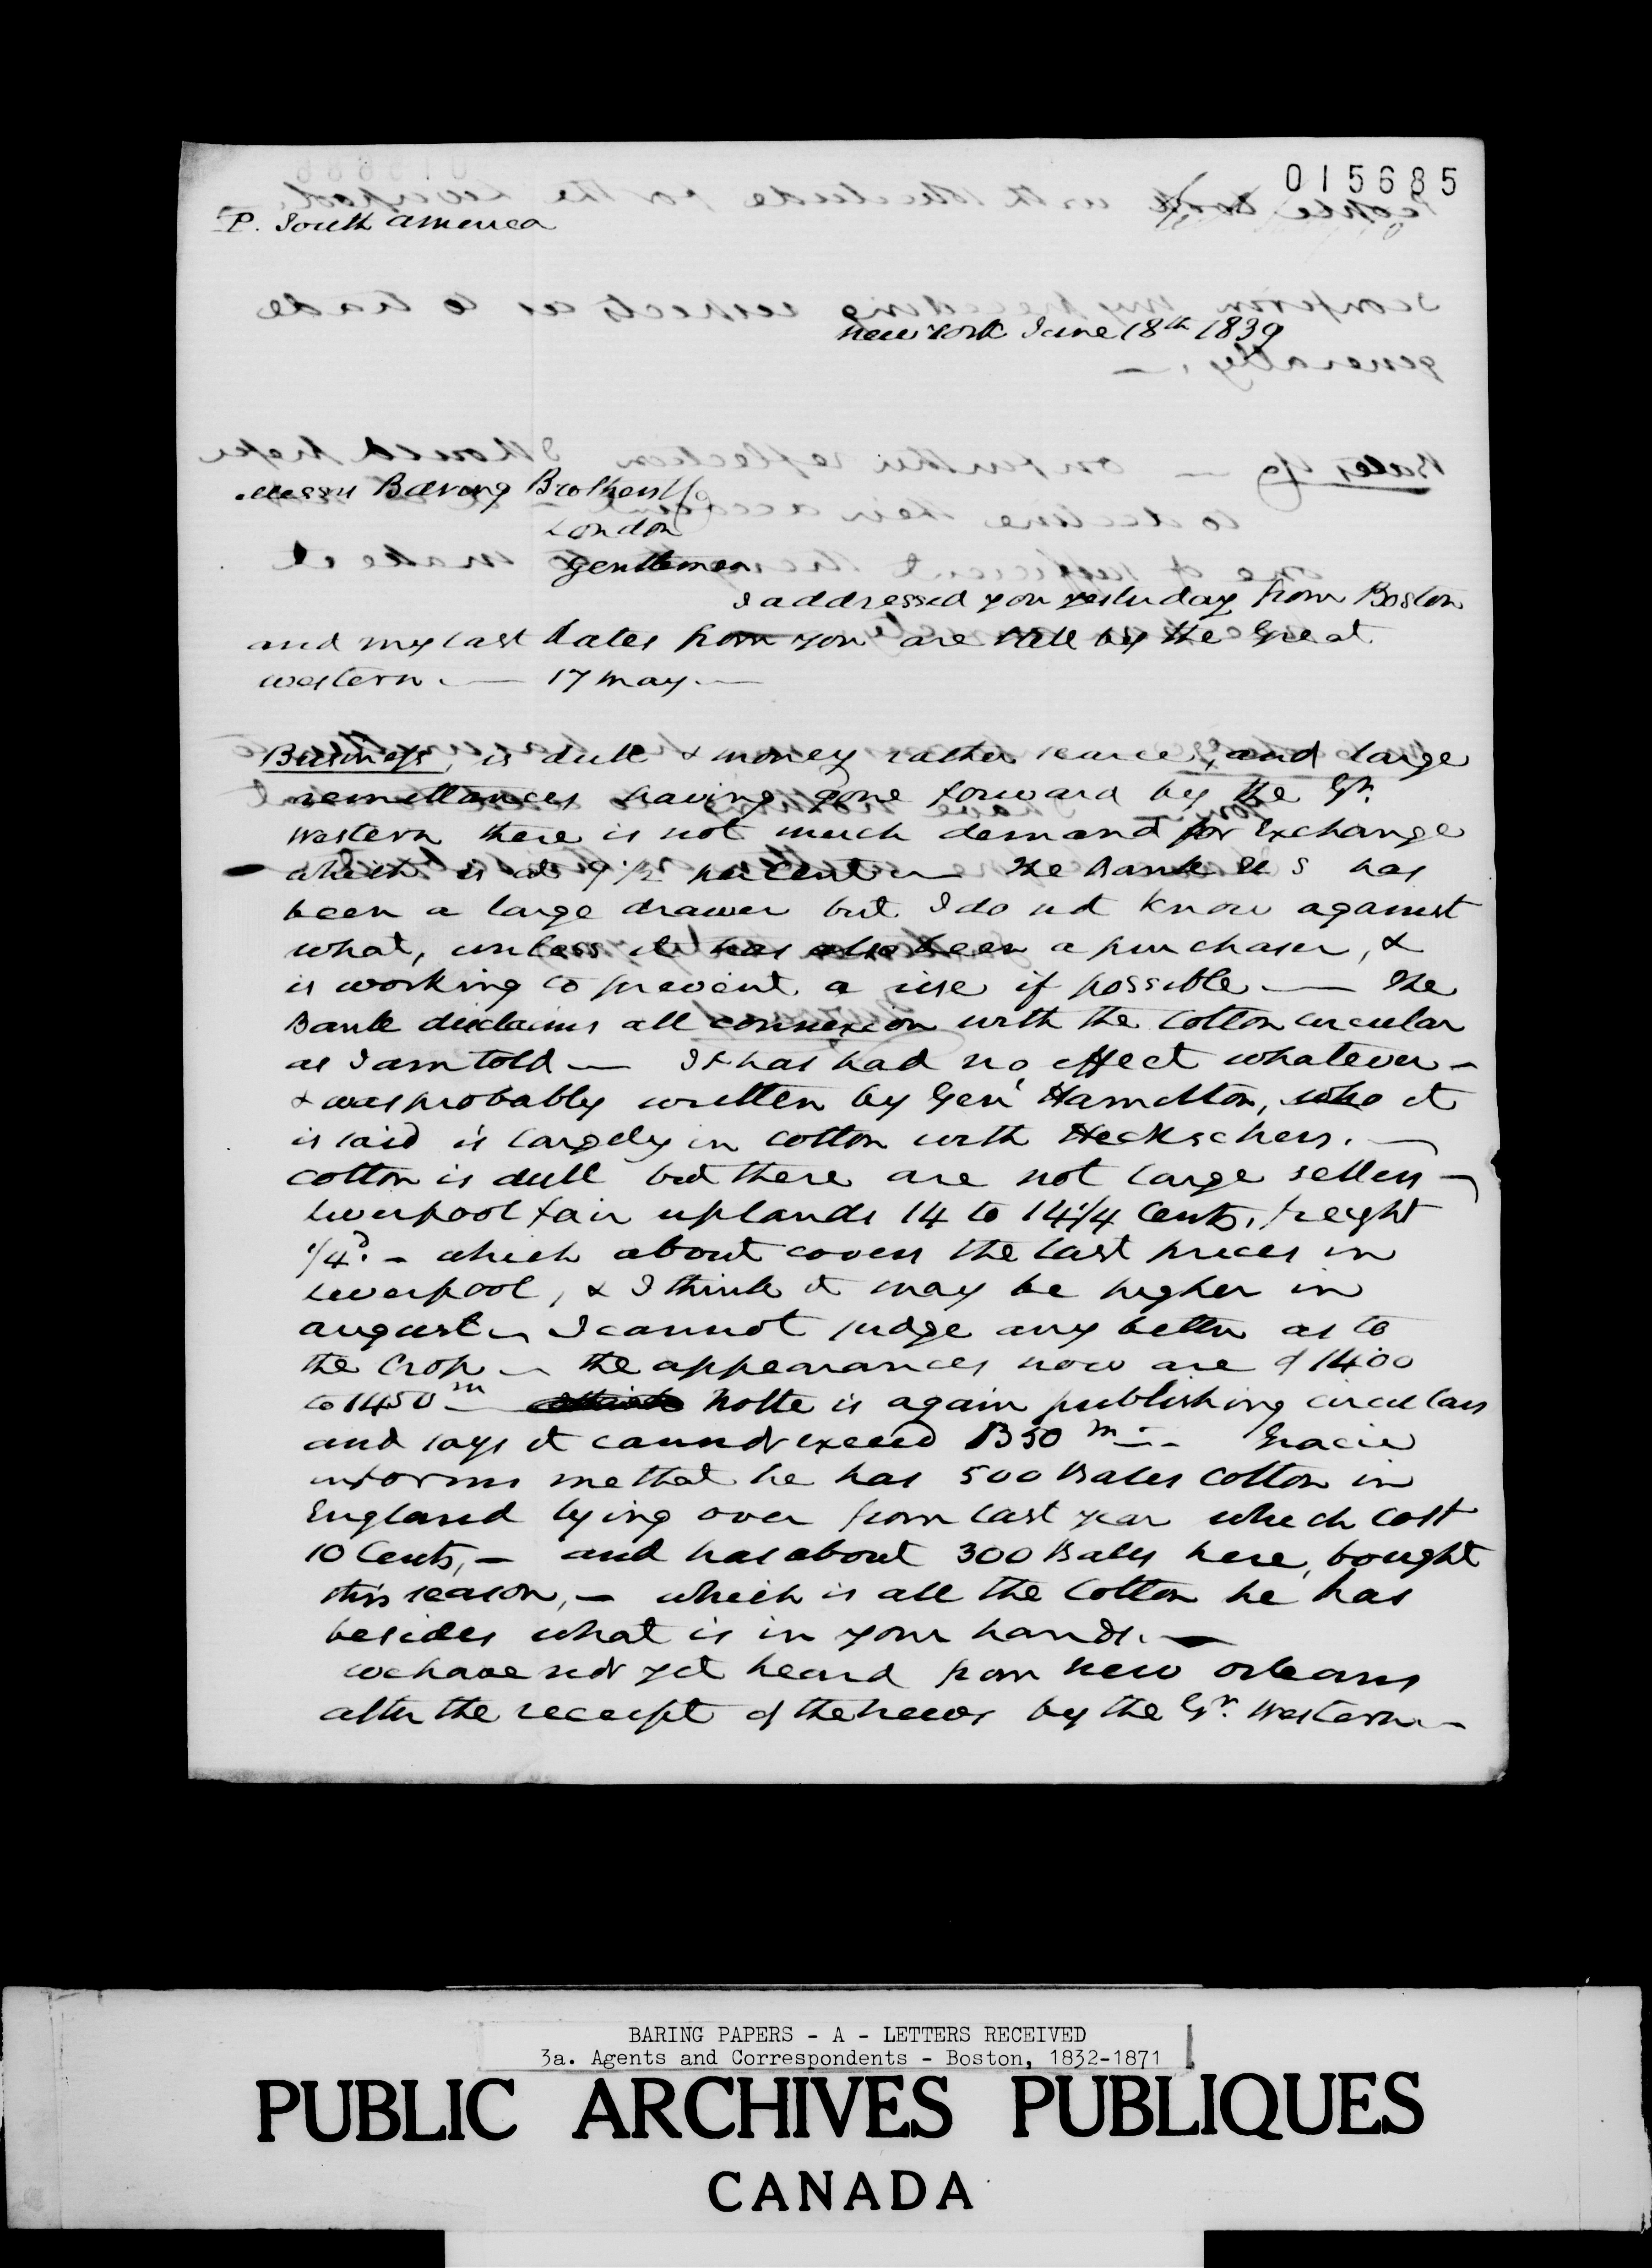 015685
P. South America
New York June 18th 1839
Messrs Baring Brothers & Co
London
Gentlemen
I addressed you yesterday from Boston
and my last dates from you are still by the Great
Western. — 17 May. —
Business, is dull & money rather scarce, and large
remittances having gone forward by the Gt.
Western there is not much demand for Exchange
which is at 9 1/2 per cent — The Bank U S has
been a large drawer but I do not know against
what, unless it has also been a purchaser, &
is working to prevent a rise if possible. — The
Bank disclaims all connexion with the Cotton circular
as I am told — It has had no effect whatever —
& was probably written by Genl Hamilton, who it
is said is largely in Cotton with Heckschers. —
Cotton is dull but there are not large sellers —
Liverpool fair uplands 14 to 14 1/4 Cents, freight
1/4d. — which about covers the last prices in
Liverpool, & I think it may be higher in
August — I cannot judge any better as to
the Crop — the appearances now are of 1400
to 1450 m — Nolte is again publishing circulars
and says it cannot exceed 1350 m — Gracie
informs me that he has 500 Bales Cotton in
England lying over from last year which cost
10 Cents, — and has about 300 Bales here, bought
this season, — which is all the Cotton he has
besides what is in your hands. —
We have not yet heard from New Orleans
after the receipt of the news by the Gt. Western —
BARING PAPERS - A - LETTERS RECEIVED
3a. Agents and Correspondents - Boston, 1832-1871
PUBLIC ARCHIVES PUBLIQUES
CANADA